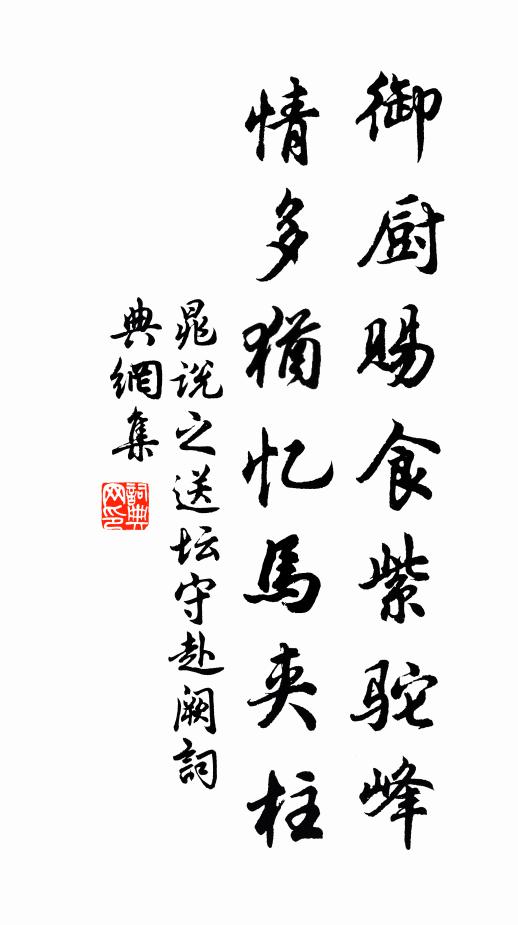 御厨赐食紫驼峰
情多犹忆馬夹柱
晁说之送坛守赴阙詞
典網集
詞典
网印